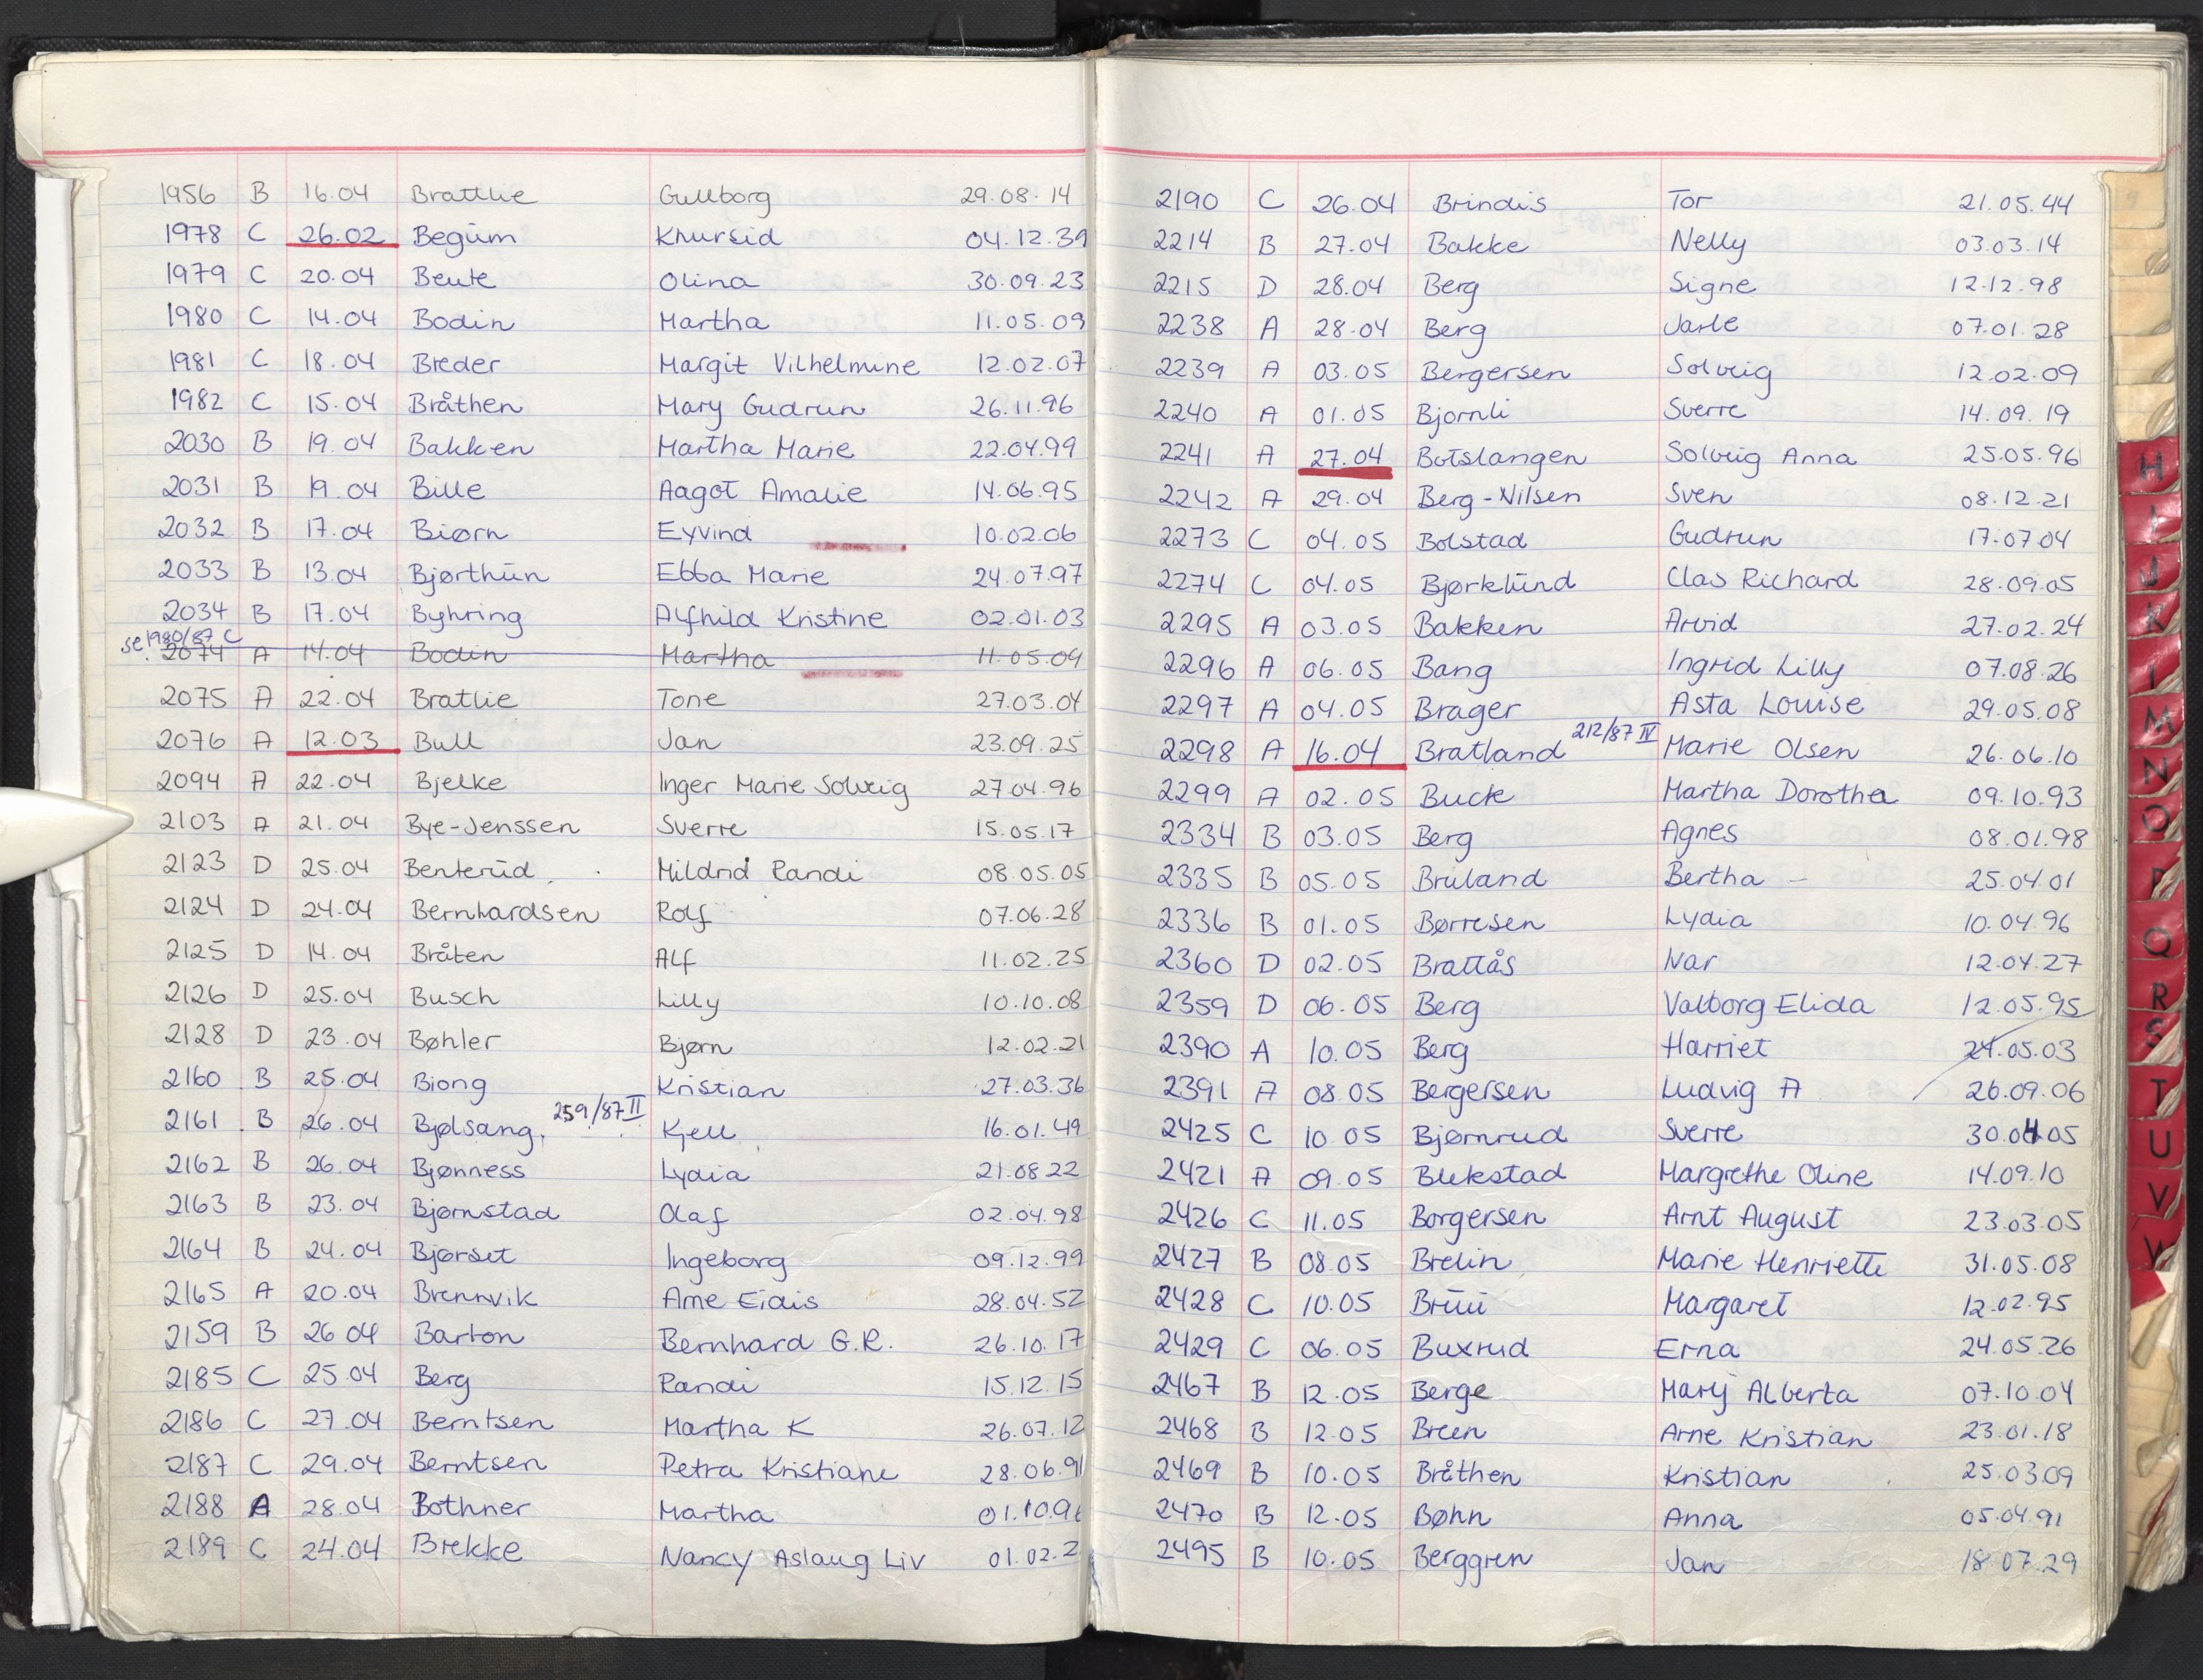 1956 B 16.04 Brattlie Gullborg 29.08.14
1978 C 26.02 Begum Khursid 04.12.39
1979 C 20.04 Beute Olina 30.09.23
1980 C 14.04 Bodin Martha 11.05.09
1981 C 18.04 Breder Margit Vilhelmine 12.02.07
1982 C 15.04 Bråthen Mary Gudrun 26.11.96
2030 B 19.04 Bakken Martha Marie 22.04.99
2031 B 19.04 Bille Aagot Amalie 14.06.95
2032 B 17.04 Biørn Eyvind 10.02.06
2033 B 13.04 Bjørthun Ebba Marie 24.07.97
2034 B 17.04 Byhring Alfhild Kristine 02.01.03
se 1980/87 C
2074 A 14.04 Bodin Martha 11.05.09
2075 A 22.04 Bratlie Tone 27.03.04
2076 A 12.03 Bull Jan 23.09.25
2094 A 22.04 Bjelke Inger Marie Solveig 27.04.96
2103 A 21.04 Bye-Jenssen Sverre 15.05.17
2123 D 25.04 Benterud Mildrid Randi 08.05.05
2124 D 24.04 Bernhardsen Rolf 07.06.28
2125 D 14.04 Bråten Alf 11.02.25
2126 D 25.04 Busch Lilly 10.10.08
2128 D 23.04 Bøhler Bjørn 12.02.21
2160 B 25.04 Biong Kristian 27.03.36
2161 B 26.04 Bjølsang 259/87 II Kjell 16.01.49
2162 B 26.04 Bjønness Lydia 21.08.22
2163 B 23.04 Bjørnstad Olaf 02.04.98
2164 B 24.04 Bjørset Ingeborg 09.12.99
2165 A 20.04 Brennvik Arne Eidis 28.04.52
2159 B 26.04 Barton Bernhard G.R. 26.10.17
2185 C 25.04 Berg Randi 15.12.15
2186 C 27.04 Berntsen Martha K 26.07.12
2187 C 29.04 Berntsen Petra Kristiane 28.06.91
2188 A 28.04 Bothner Martha 01.10.96
2189 C 24.04 Brekke Nancy Aslaug Liv 01.02.2
2190 C 26.04 Brindis Tor 21.05.44
2214 B 27.04 Bakke Nelly 03.03.14
2215 D 28.04 Berg Signe 12.12.98
2238 A 28.04 Berg Jarle 07.01.28
2239 A 03.05 Bergersen Solveig 12.02.09
2240 A 01.05 Bjornli Sverre 14.09.19
2241 A 27.04 Botslangen Solveig Anna 25.05.96
2242 A 29.04 Berg-Nilsen Sven 08.12.21
2273 C 04.05 Bolstad Gudrun 17.07.04
2274 C 04.05 Bjørklund Clas Richard 28.09.05
2295 A 03.05 Bakken Arvid 27.02.24
2296 A 06.05 Bang Ingrid Lilly 07.08.26
2297 A 04.05 Brager Asta Louise 29.05.08
2298 A 16.04 Bratland 212/87 IV Marie Olsen 26.06.10
2299 A 02.05 Buck Martha Dorothea 09.10.93
2334 B 03.05 Berg Agnes 08.01.98
2335 B 05.05 Bruland Bertha – 25.04.01
2336 B 01.05 Børresen Lydia 10.04.96
2360 D 02.05 Brattås Ivar 12.04.27
2359 D 06.05 Berg Valborg Elida 12.05.95
2390 A 10.05 Berg Harriet 24.05.03
2391 A 08.05 Bergersen Ludvig A 26.09.06
2425 C 10.05 Bjørnrud Sverre 30.04.05
2421 A 09.05 Blekstad Margrethe Oline 14.09.10
2426 C 11.05 Borgersen Arnt August 23.03.05
2427 B 08.05 Brelin Marie Henriette 31.05.08
2428 C 10.05 Bruu Margaret 12.02.95
2429 C 06.05 Buxrud Erna 24.05.26
2467 B 12.05 Berge Mary Alberta 07.10.04
2468 B 12.05 Breen Arne Kristian 23.01.18
2469 B 10.05 Bråthen Kristian 25.03.09
2470 B 12.05 Bøhn Anna 05.04.91
2495 B 10.05 Berggren Jan 18.07.29
H
I
J
K
L
M
N
O
P
Q
R
S
T
U
V